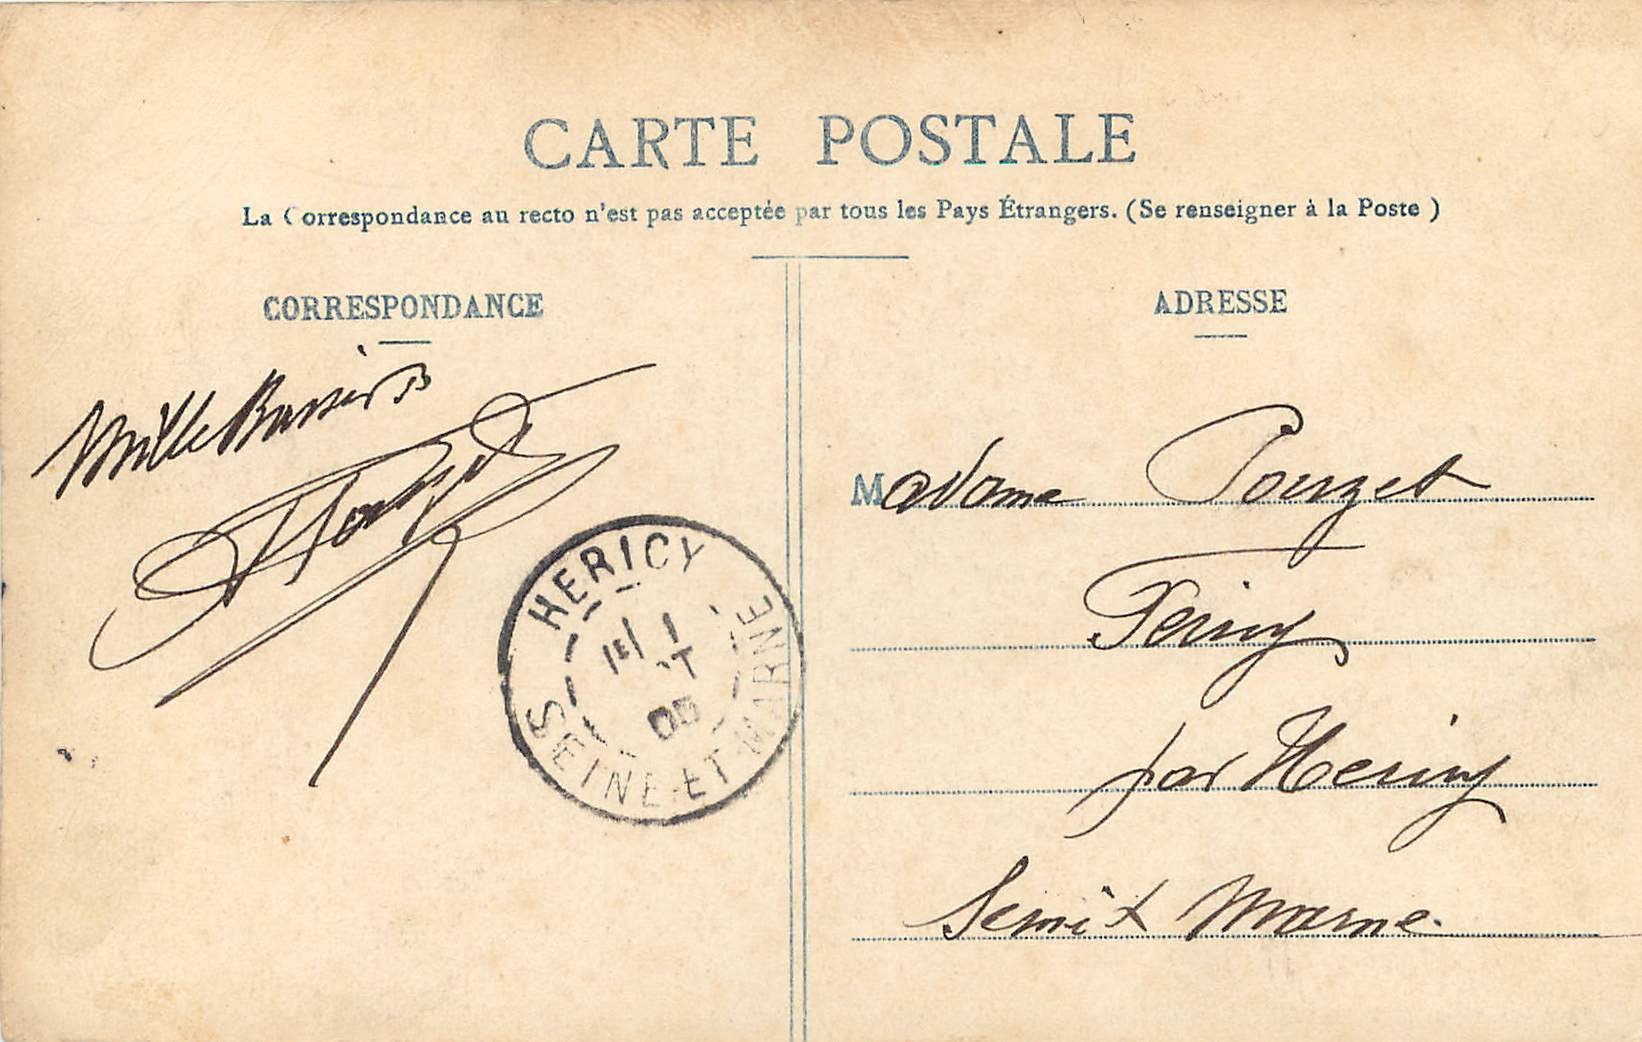 CARTE POSTALE
La Correspondance au recto n'est pas acceptée par tous les Pays Étrangers. (Se renseigner à la Poste )
CORRESPONDANCE
Mille Baisers
HERICY
SEINE-ET-MARNE
ADRESSE
Madame Pouzet
Fericy
par Hericy
Seine et Marne.